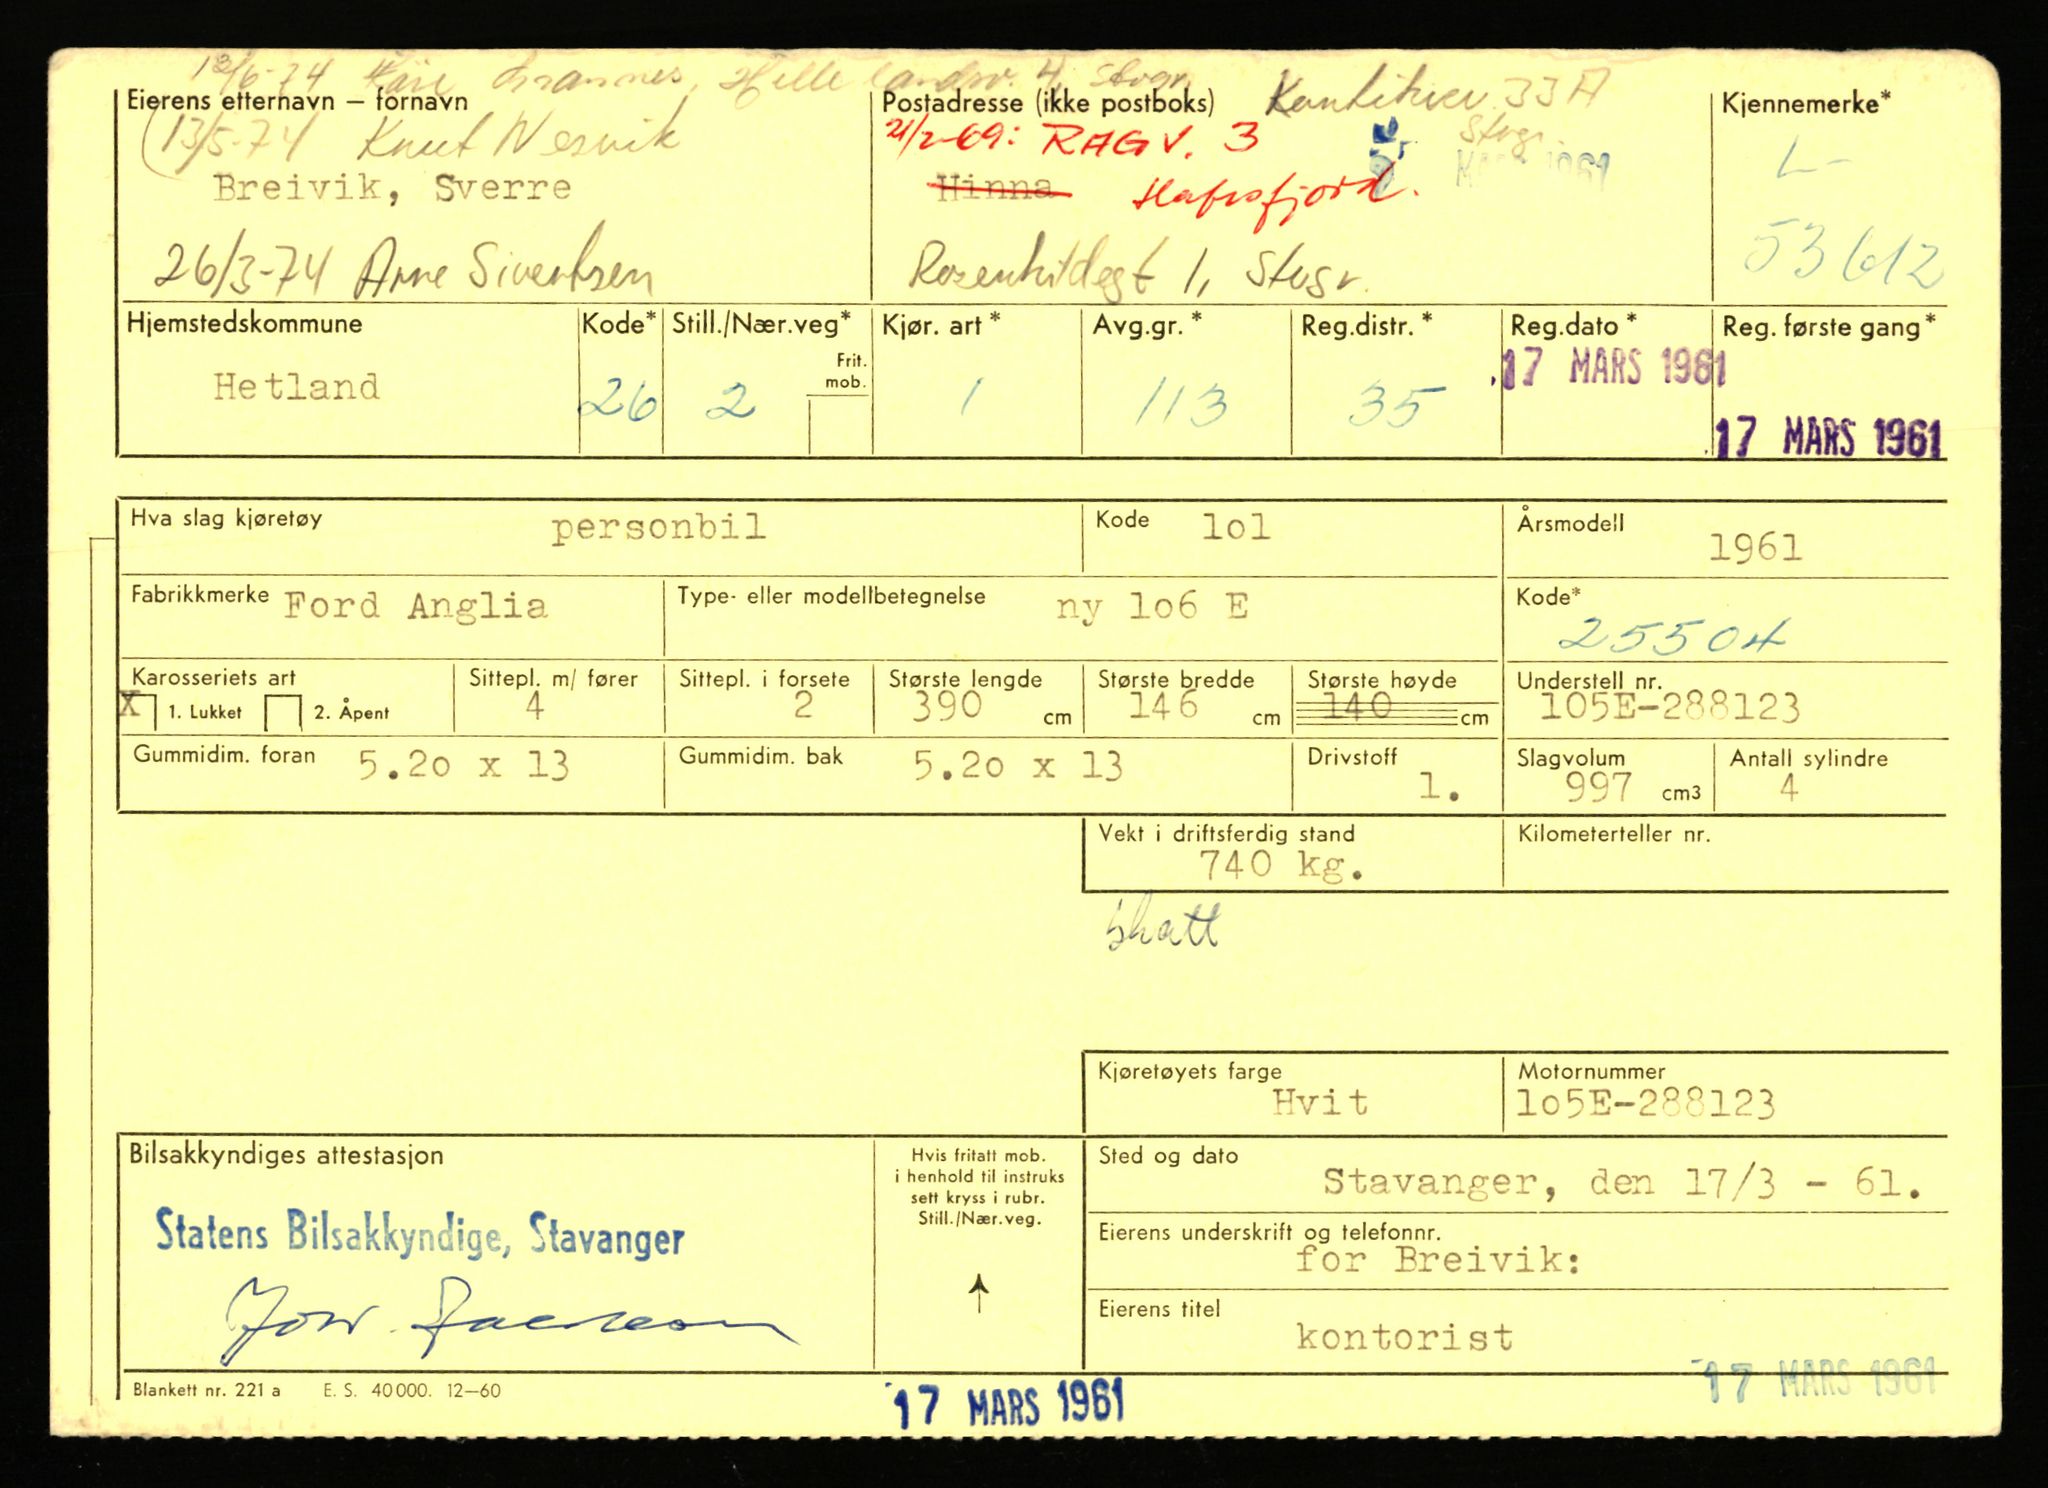 13/6-74 Kåre Grannes, Hillelandsv. 4, Stvgr.
Eierens etternavn – fornavn
Postadresse (ikke postboks)
33 A
Kjennemerke*
(13/5-74 Knut Nesvik
21/2-69: RAGV. 3
Stvgr.
1961
L-
Breivik, Sverre
Hinna
Hafrsfjord.
53612
26/3-74 Arne Sivertsen
1, Stvgr.
Hjemstedskommune
Kode*
Still./Nær.veg*
Kjør. art *
Avg.gr. *
Reg.distr. *
Reg.dato *
Reg. første gang *
Frit. mob.
17 MARS 1961
Hetland
26
2
1
113
35
17 MARS 1961
Hva slag kjøretøy
personbil
Kode
lol
Årsmodell
1961
Fabrikkmerke
Ford Anglia
Type- eller modellbetegnelse
ny lo6 E
Kode*
25504
Karosseriets art
Sittepl. m/ fører
Sittepl. i forsete
Største lengde
Største bredde
Største høyde
Understell nr.
X 1. Lukket
2. Åpent
4
2
390 cm
146 cm
140 cm
105E-288123
Gummidim. foran
5.2o x 13
Gummidim. bak
5.2o x 13
Drivstoff
1.
Slagvolum
997 cm3
Antall sylindre
4
Vekt i driftsferdig stand
740 kg.
Kilometerteller nr.
skatt
Kjøretøyets farge
Hvit
Motornummer
lo5E-288123
Bilsakkyndiges attestasjon
Hvis fritatt mob.
i henhold til instruks
sett kryss i rubr.
Still./Nær.veg.
Sted og dato
Stavanger, den 17/3 - 61.
Statens Bilsakkyndige, Stavanger
Eierens underskrift og telefonnr.
for Breivik:
Eierens titel
kontorist
Blankett nr. 221 a E. S. 40 000. 12—60
17 MARS 1961
17 MARS 1961